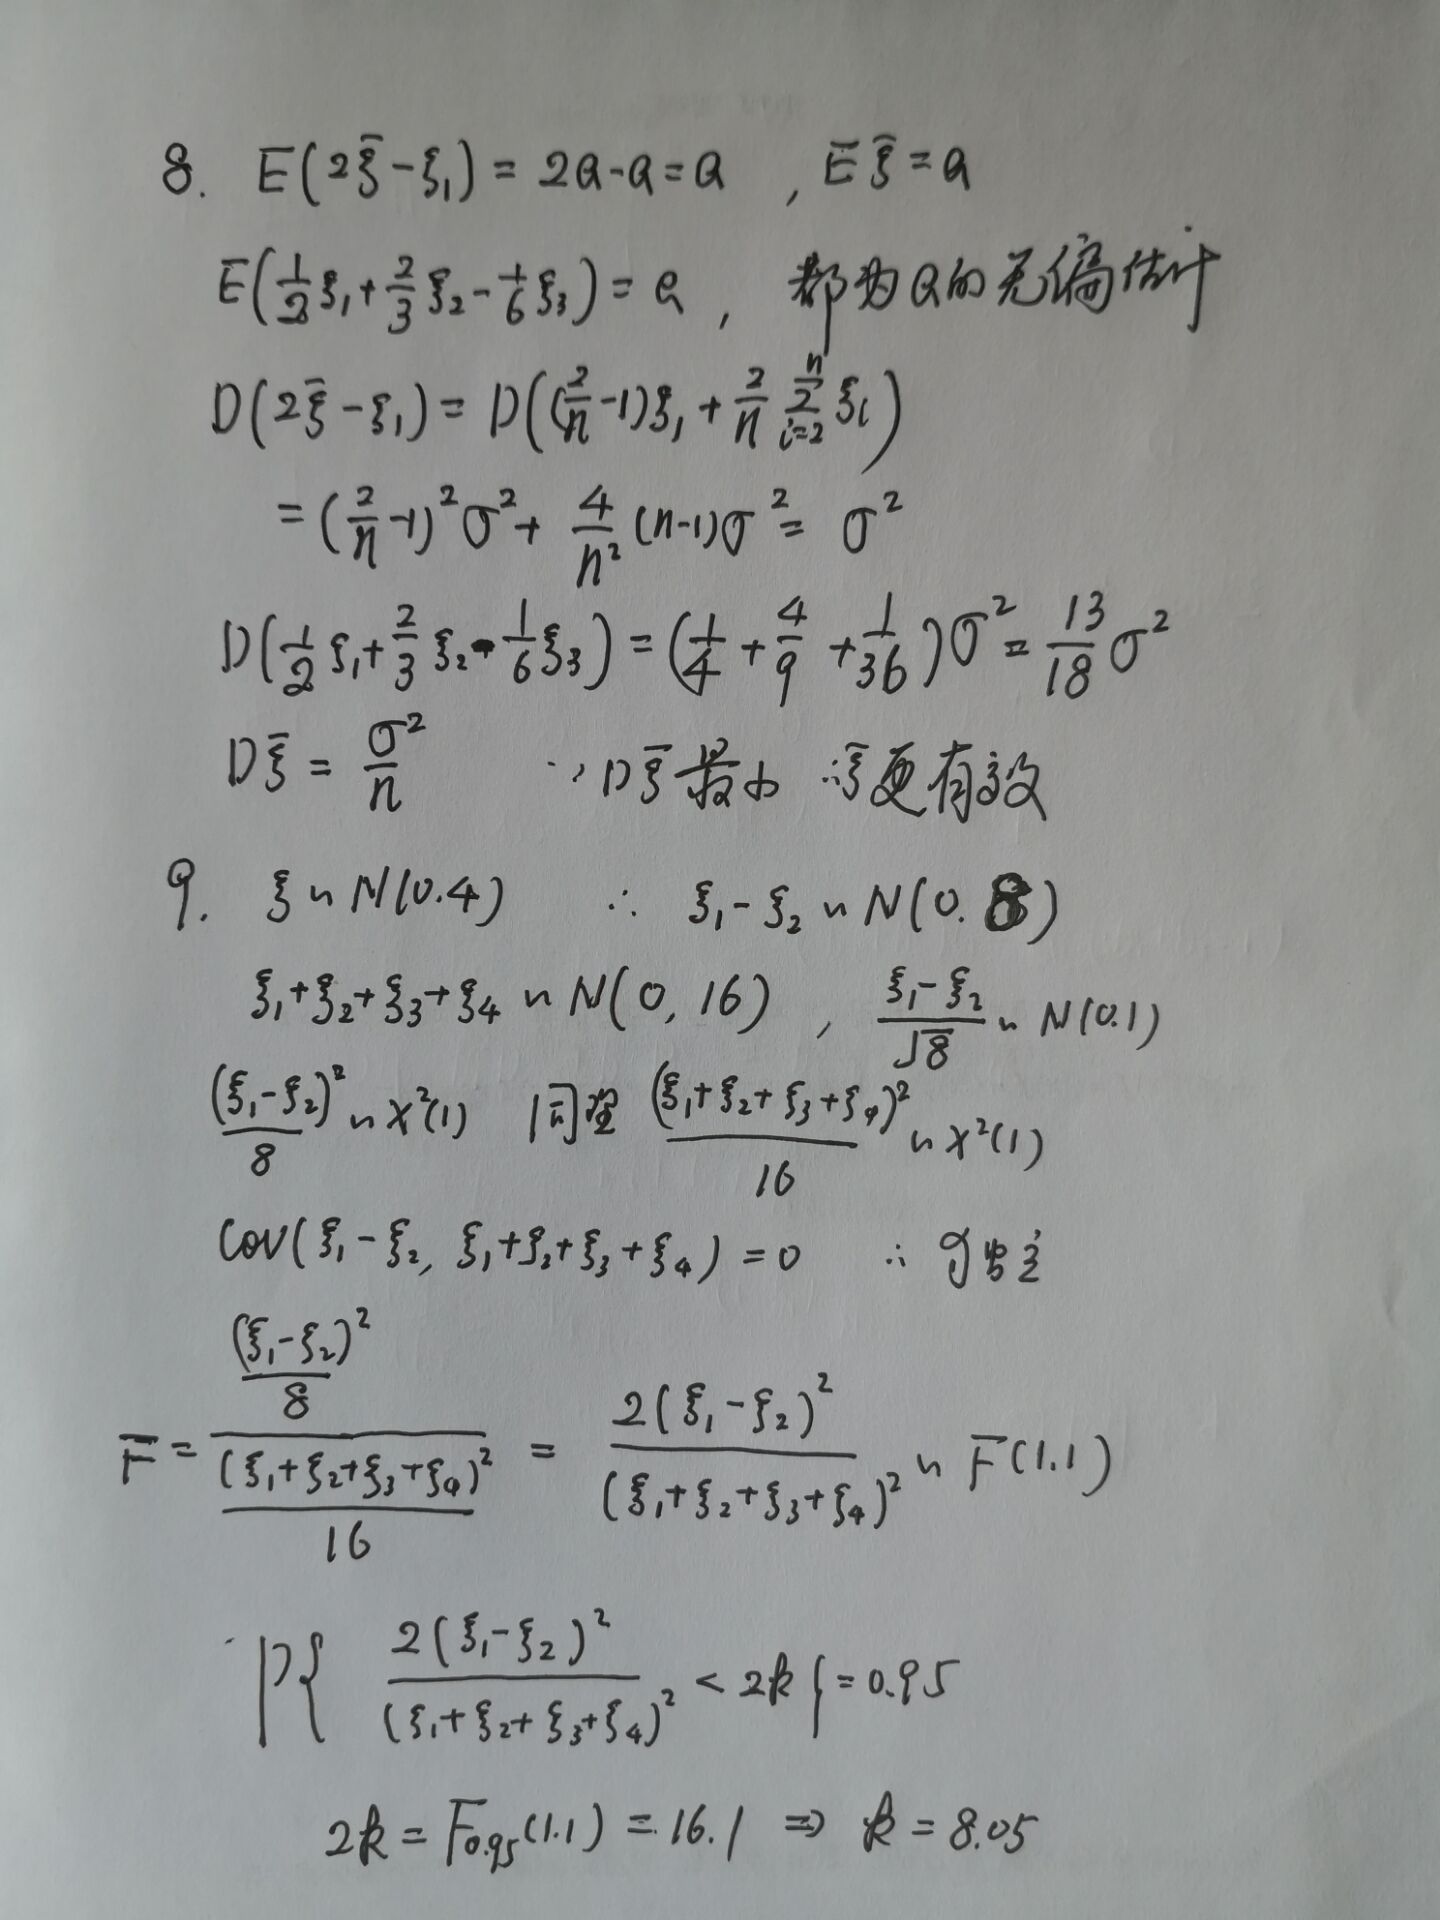 8. E(2ξ̄-ξ₁) = 2a-a=a , Eξ̄=a
E(1/2 ξ₁+2/3 ξ₂-1/6 ξ₃)=a , 都为a的无偏估计
D(2ξ̄-ξ₁)= D((2/n-1)ξ₁+2/n ∑_{i=2}^{n} ξi)
=(2/n-1)²σ²+ 4/n² (n-1)σ²= σ²
D(1/2 ξ₁+2/3 ξ₂-1/6 ξ₃)=(1/4+4/9+1/36)σ²=13/18 σ²
Dξ̄=σ²/n ∵Dξ̄最小 ∴ξ̄更有效
9. ξ~N(0.4) ∴ ξ₁-ξ₂~N(0.8)
ξ₁+ξ₂+ξ₃+ξ₄~N(0,16) , (ξ₁-ξ₂)/√8~N(0.1)
(ξ₁-ξ₂)²/8~χ²(1) 同理 (ξ₁+ξ₂+ξ₃+ξ₄)²/16~χ²(1)
Cov(ξ₁-ξ₂, ξ₁+ξ₂+ξ₃+ξ₄)=0 ∴独立
F=((ξ₁-ξ₂)²/8)/((ξ₁+ξ₂+ξ₃+ξ₄)²/16) = 2(ξ₁-ξ₂)²/(ξ₁+ξ₂+ξ₃+ξ₄)²~F(1.1)
P{2(ξ₁-ξ₂)²/(ξ₁+ξ₂+ξ₃+ξ₄)²<2k}=0.95
2k=F₀.₉₅(1.1)=16.1 ⇒ k=8.05